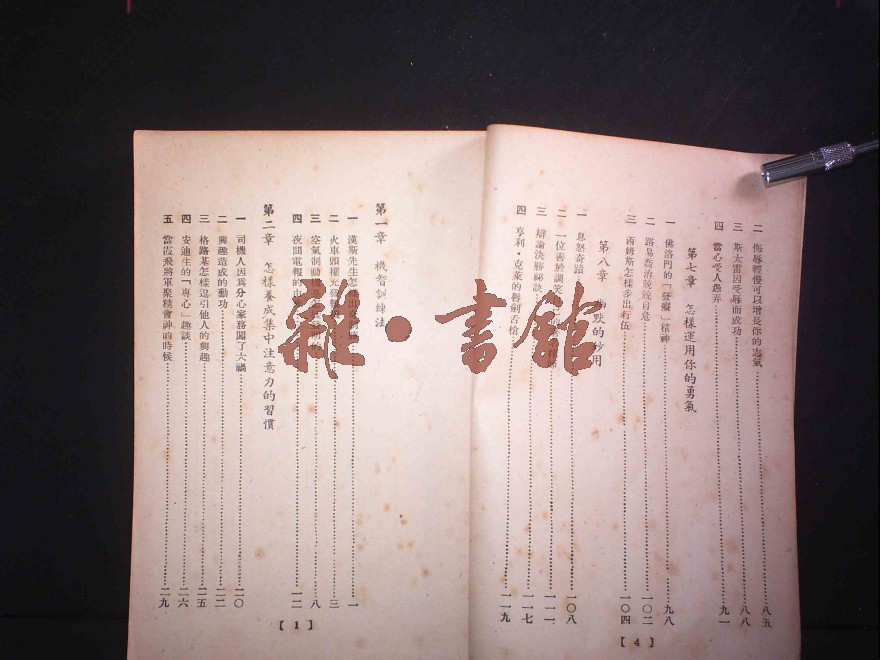 二 侮辱輕慢可以增長你的志氣 八五
三 斯太雷因受辱而成功 八八
四 當心受人愚弄 九一
第七章 怎樣運用你的勇氣
一 佛洛門的「發癡」精神 九八
二 路易喬治脫險 一〇二
三 西姆斯怎樣步出行伍 一〇四
第八章 幽默的妙用
一 息怒奇蹟 一〇八
二 一位善於調笑 一一一
三 辯論決勝祕訣 一一七
四 亨利·克萊的唇劍舌槍 一一九
【4】
第一章 機智訓練法
一 漢斯先生怎 一
二 火車頭權充發 三
三 空氣制動機 八
四 夜間電報的 一二
第二章 怎樣養成集中注意力的習慣
一 司機人因爲分心家務闖了大禍 二〇
二 興趣造成的動功 二二
三 格路基怎樣逗引他人的興趣 二五
四 安迪生的「專心」趣談 二六
五 當霞飛將軍聚精會神的時候 二九
【1】
雜·書館